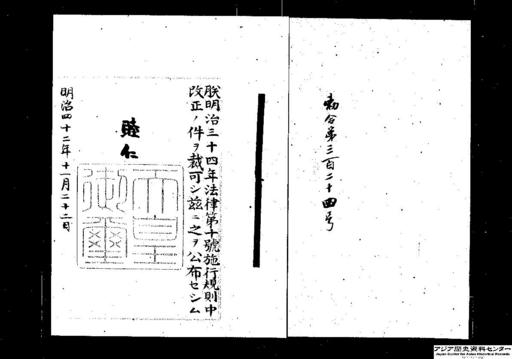 勅令第三百二十四号
朕明治三十四年法律第十號施行規則中
改正ノ件ヲ裁可シ玆ニ之ヲ公布セシム
睦仁
天皇
御璽
明治四十二年十一月二十二日
アジア歴史資料センター
Japan Center for Asian Historical Records